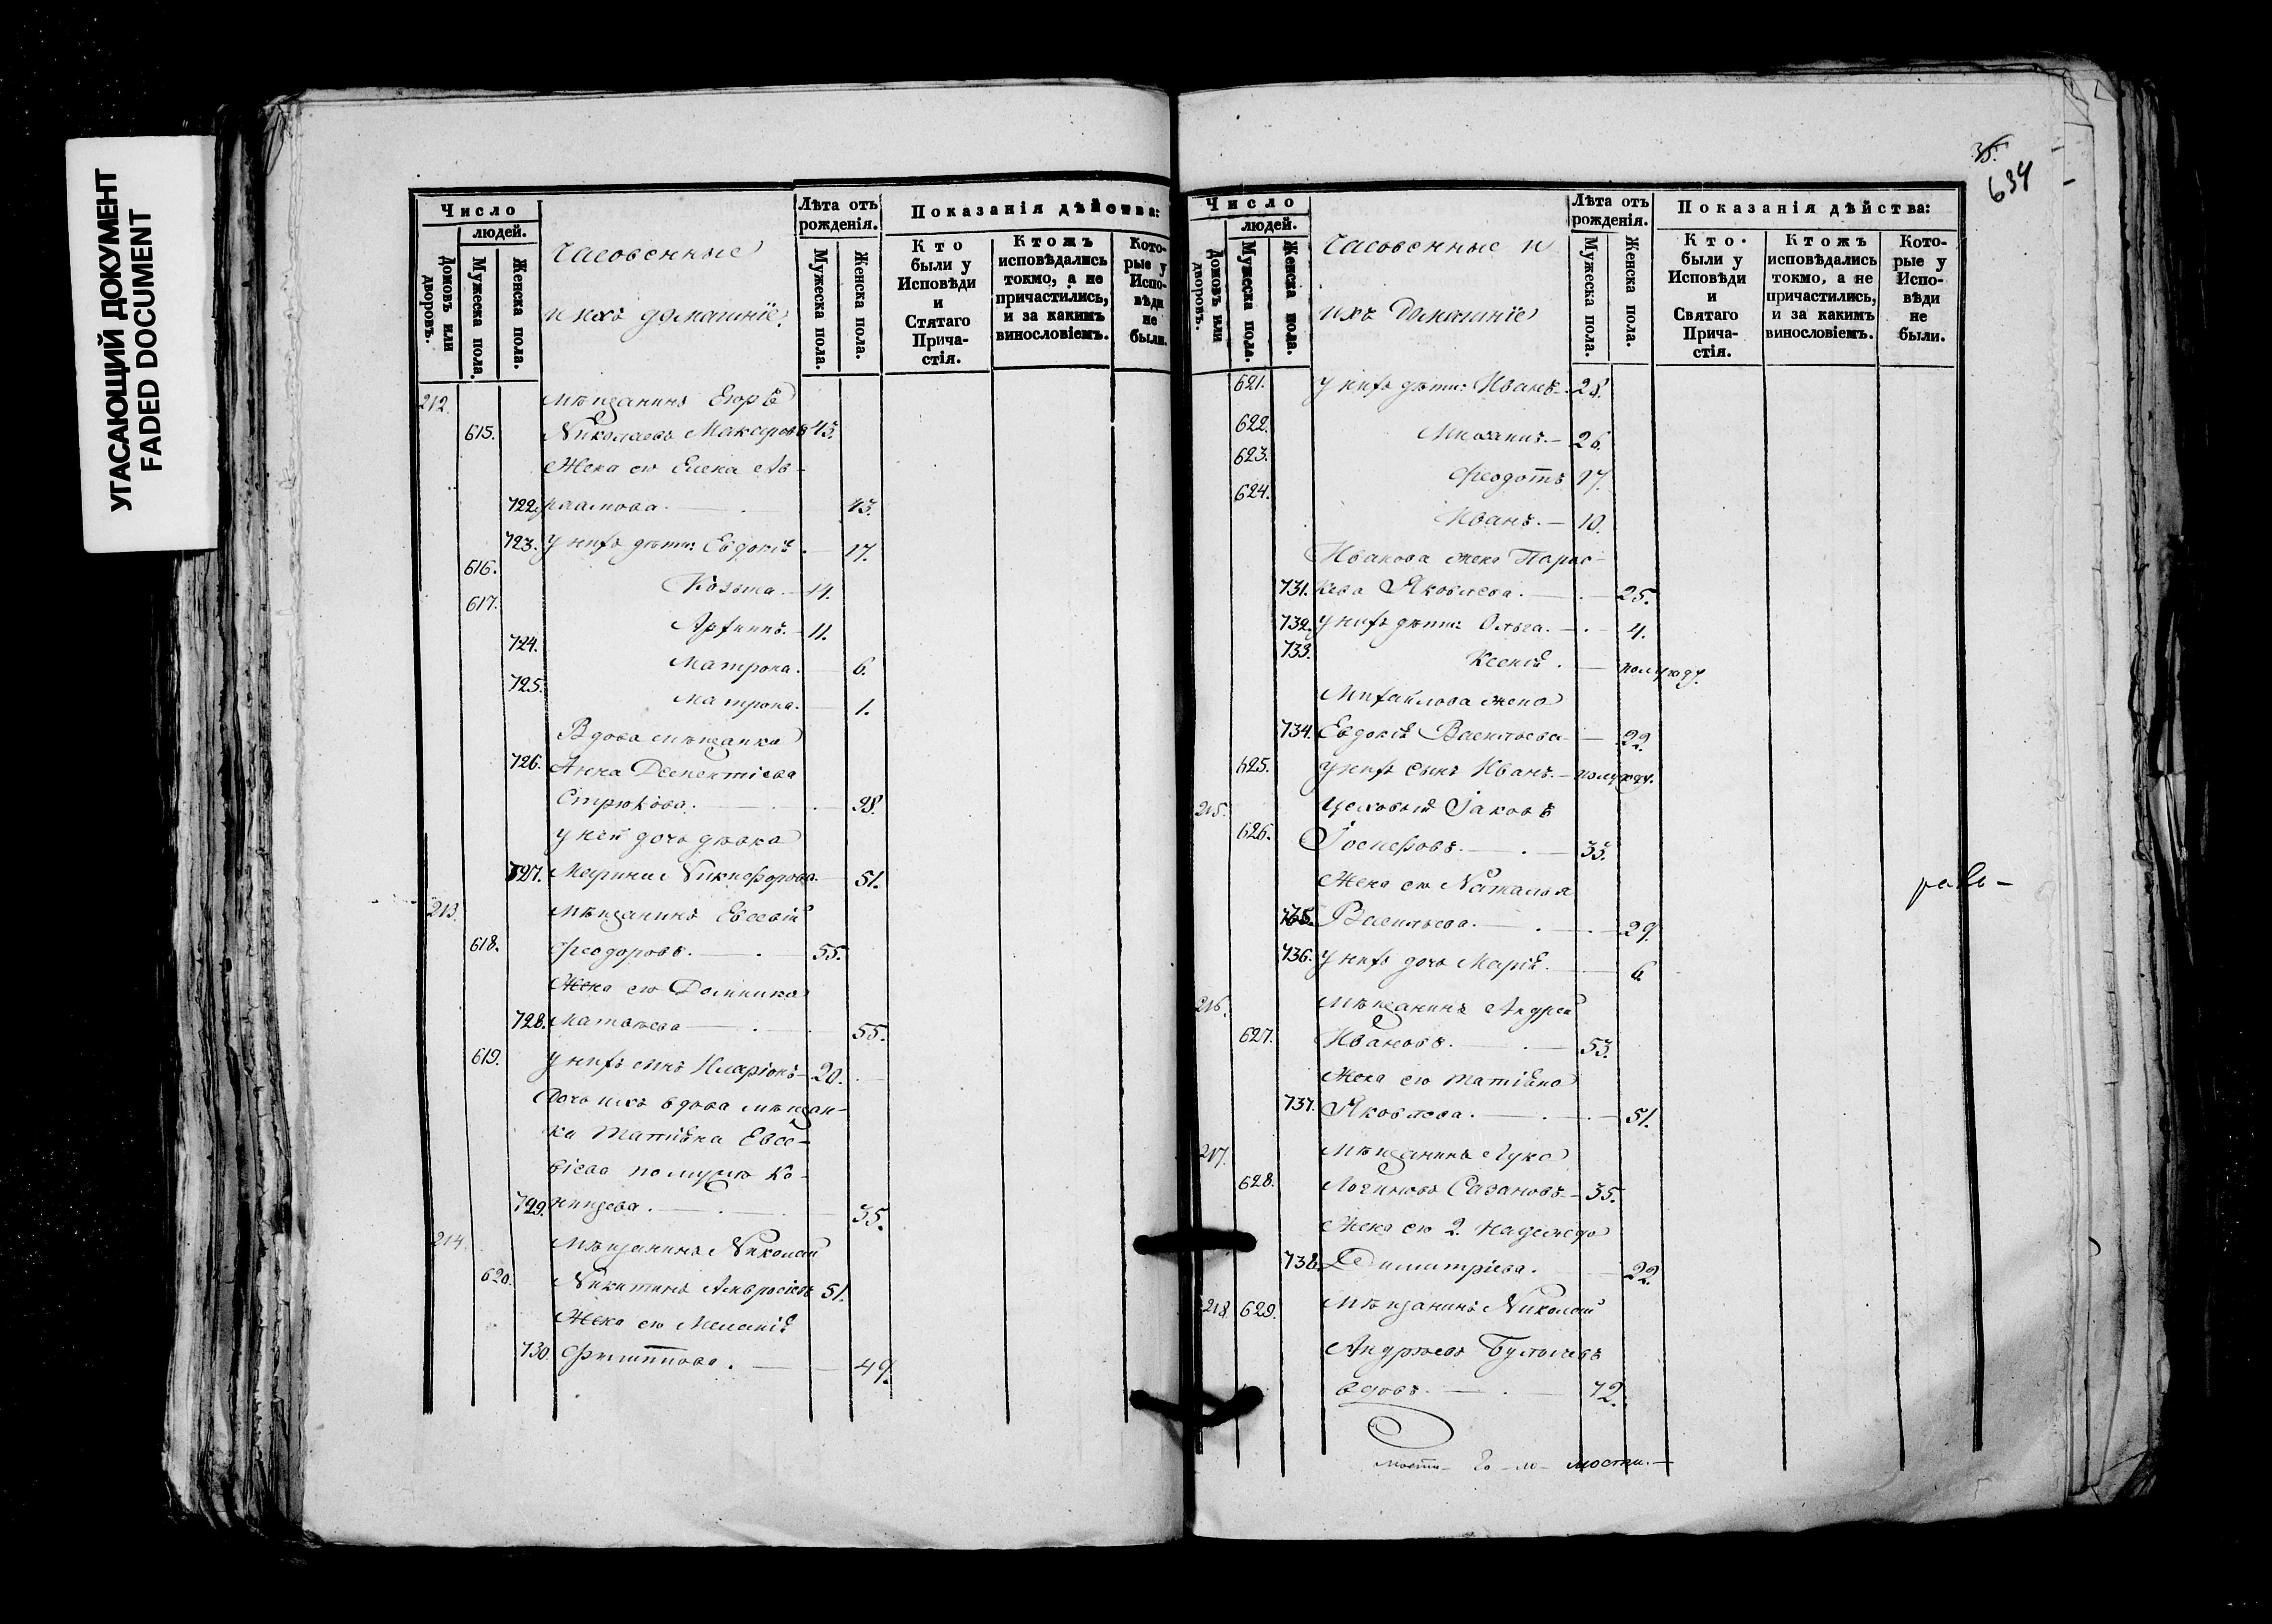 УГАСАЮЩИЙ ДОКУМЕНТ
FADED DOCUMENT
Число
людей.
Домовъ или дворовъ.
Мужеска пола.
Женска пола.
Часовенные
и ихъ домашніе.
Лѣта отъ рожденія.
Мужеска пола.
Женска пола.
Показанія дѣйства:
Кто были у Исповѣди и Стятаго Прича- стія.
Ктожъ исповѣдались токмо, а не причастились, и за какимъ винословіемъ.
Кото- рые у Испо- вѣди не были.
212. мѣщанинъ Егоръ
615. Николаевъ 43.
Жена его Елена Ав-
722. раамова. 43.
723. у нихъ дѣти: Евдокія 17.
616. Козьма. 14.
617. Архипъ. 11.
724. Матрона. 6.
725. Матрона. 1.
Вдова мѣщанка
726. Анна Дементіева
Стрюкова. 98.
у ней дочь дѣвка
727. Никифорова. 51.
213. мѣщанинъ Евсевій
618. Феодоровъ. 55.
Жена его Домника
728. Матвѣева 55.
619. у нихъ сынъ Иларіонъ 20.
Дочь ихъ вдова мѣщан-
ка Татіана Евсе-
віева по мужѣ Ко-
729. 35.
214. Мѣщанинъ Николай
620. Никитинъ Амвросіевъ 51.
Жена его Меланія
730. Филиппова. 49.
35.
634
Число
людей.
Домовъ или дворовъ.
Мужеска пола.
Женска пола.
Часовенные и
ихъ домашніе
Лѣта отъ рожденія.
Мужеска пола.
Женска пола.
Показанія дѣйства:
Кто были у Исповѣди и Святаго Прича- стія.
Ктожъ исповѣдались токмо, а не причастились, и за какимъ винословіемъ.
Кото- рые у Испо- вѣди не были.
621. у нихъ дѣти: Иванъ 28.
622. Михаилъ. 26.
623. Феодотъ 17.
624. Иванъ. 10.
Иванова жена Парас-
731. кева Яковлева. 25.
732. у нихъ дѣти: Ольга. 4.
733. Ксенія. полугоду.
Михайлова жена
734. Евдокія Васильева 22.
625. у нихъ сынъ Иванъ. полугоду.
215. Цеховый Іаковъ
626. Іосифовъ. 33.
Жена его Наталья
735. Васильева. 29.
736. у нихъ дочь Марія. 6.
216. Мѣщанинъ Андрей
627. Ивановъ. 53.
Жена его Татіана
737. Яковлева. 51.
217. Мѣщанинъ Лука
628. Логиновъ Сазановъ 35.
Жена его 2. Надежда
738. Димитріева. 22.
218. 629. Мѣщанинъ Николай
Андреевъ Булычевъ
вдовъ. 72.